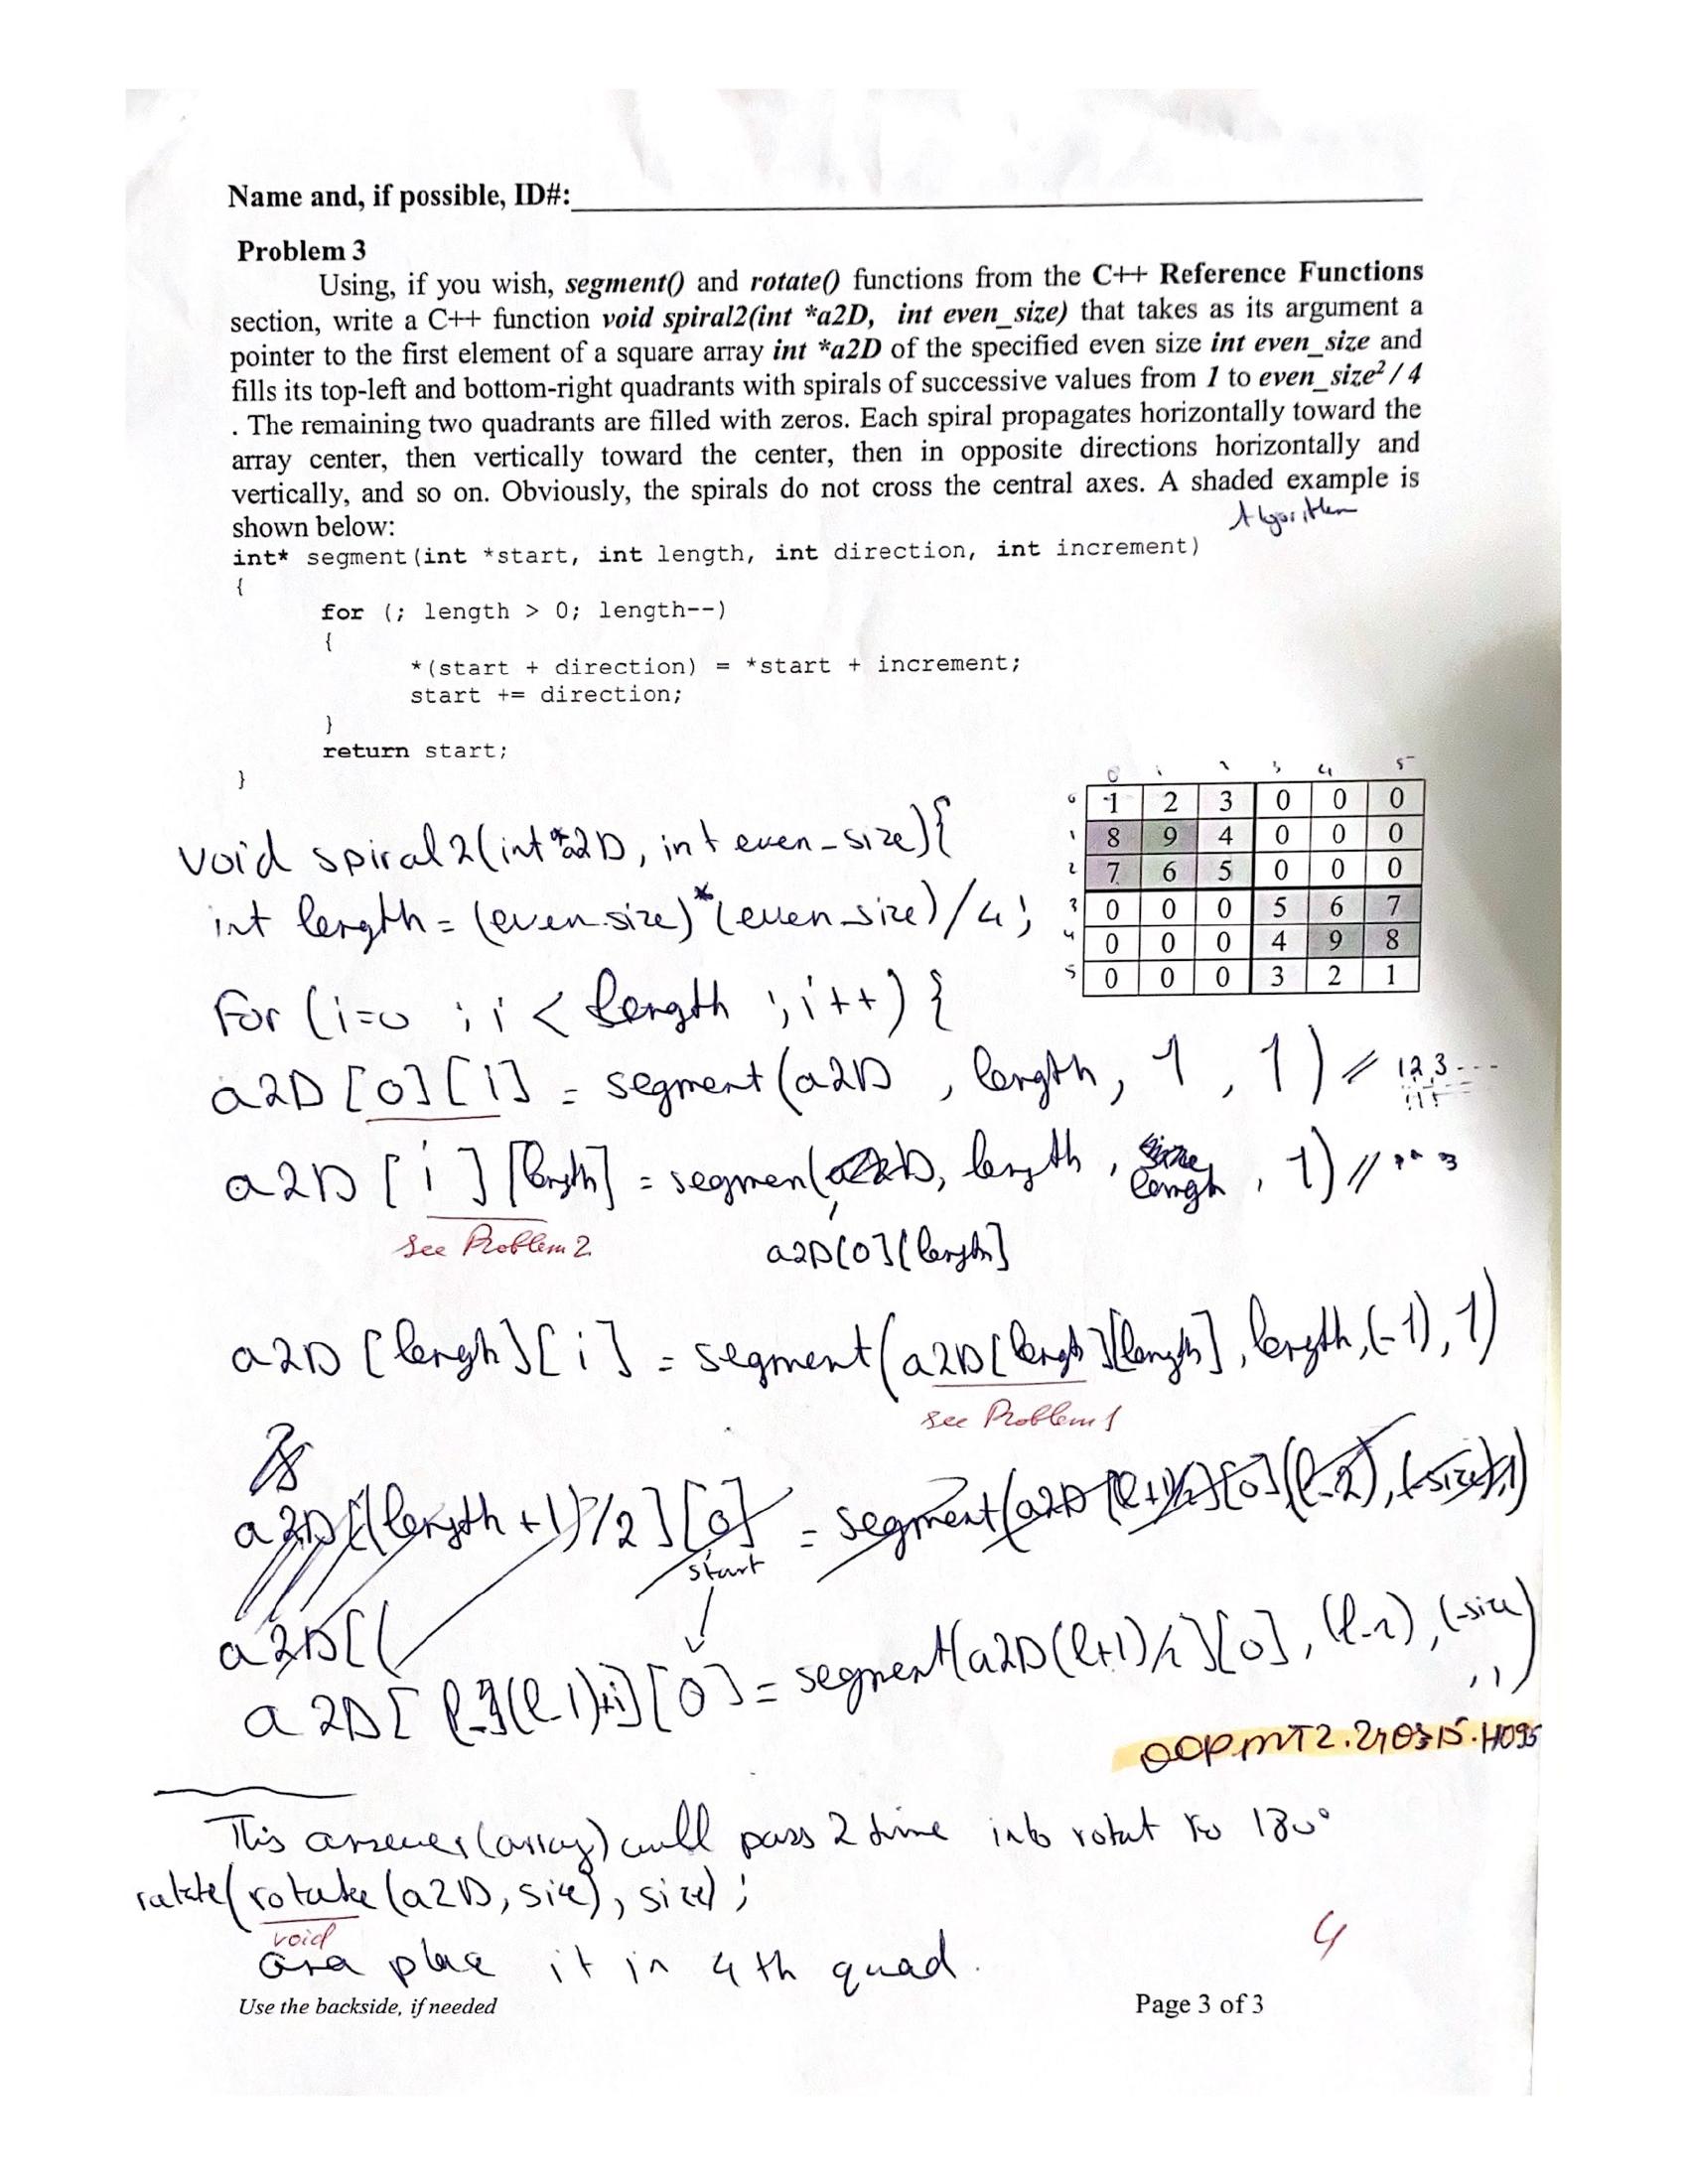 Name and, if possible, ID#:
Problem 3
Using, if you wish, segment() and rotate() functions from the C++ Reference Functions
section, write a C++ function void spiral2(int *a2D, int even_size) that takes as its argument a
pointer to the first element of a square array int *a2D of the specified even size int even_size and
fills its top-left and bottom-right quadrants with spirals of successive values from 1 to even_size² / 4
. The remaining two quadrants are filled with zeros. Each spiral propagates horizontally toward the
array center, then vertically toward the center, then in opposite directions horizontally and
vertically, and so on. Obviously, the spirals do not cross the central axes. A shaded example is
shown below:
Algorithm
int* segment(int *start, int length, int direction, int increment)
{
for (; length > 0; length--)
{
*(start + direction) = *start + increment;
start += direction;
}
return start;
}
0 1 2 3 4 5
0 1 2 3 0 0 0
1 8 9 4 0 0 0
2 7 6 5 0 0 0
3 0 0 0 5 6 7
4 0 0 0 4 9 8
5 0 0 0 3 2 1
void spiral2(int *a2D, int even_size){
int length = (even_size)*(even_size)/4;
for (i=0 ; i < length ; i++) {
a2D [0][i] = segment(a2D , length, 1 , 1) // 123....
a2D [ i ] [length] = segmen( , length , lengh , 1) // 3
see Problem 2
a2D[0][length]
a2D [lengh][ i ] = segment(a2D[lengh][length], length, (-1), 1)
see Problem 1
a2D[(length +1)/2][0] = segment(a2D [0] (l-2), (-size),1)
start
a2D[(
a2D[ (l-1)+i][0] = segment(a2D(l+1)/2][0], (l-2), (-size)
,1)
OOP.MT2.240315.H095
This answer (array) will pass 2 time into rotat to 180°
ratate(rotate (a2D, size), size) ;
void
and place it in 4th quad.
4
Use the backside, if needed
Page 3 of 3